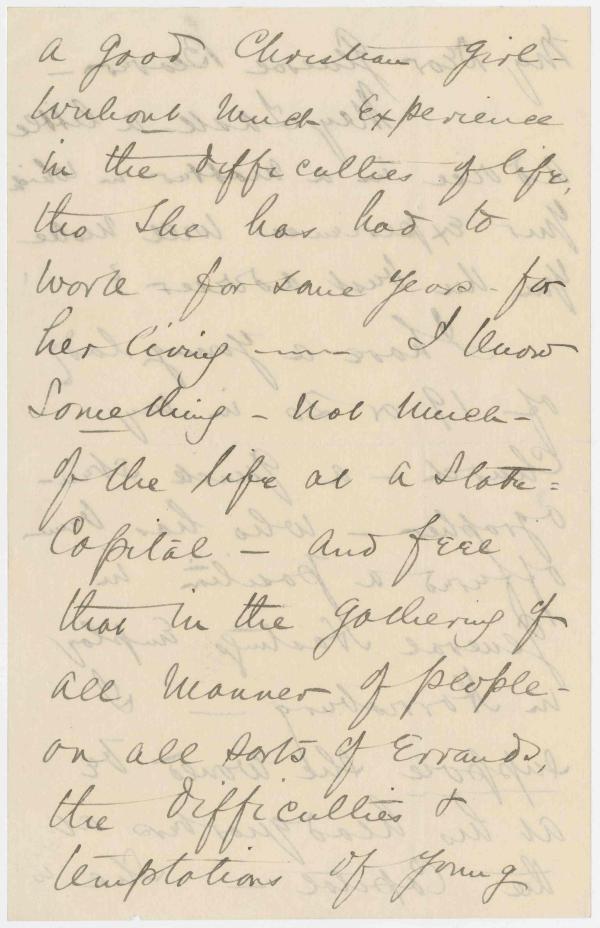 a good Christian girl -
without much experience
in the difficulties of life,
tho she has had to
work for some years - for
her living —— I know
something - not much -
of the life at a State=
Capital - and feel
that in the gathering of
all manner of people -
on all sorts of errands,
the difficulties &
temptations of young